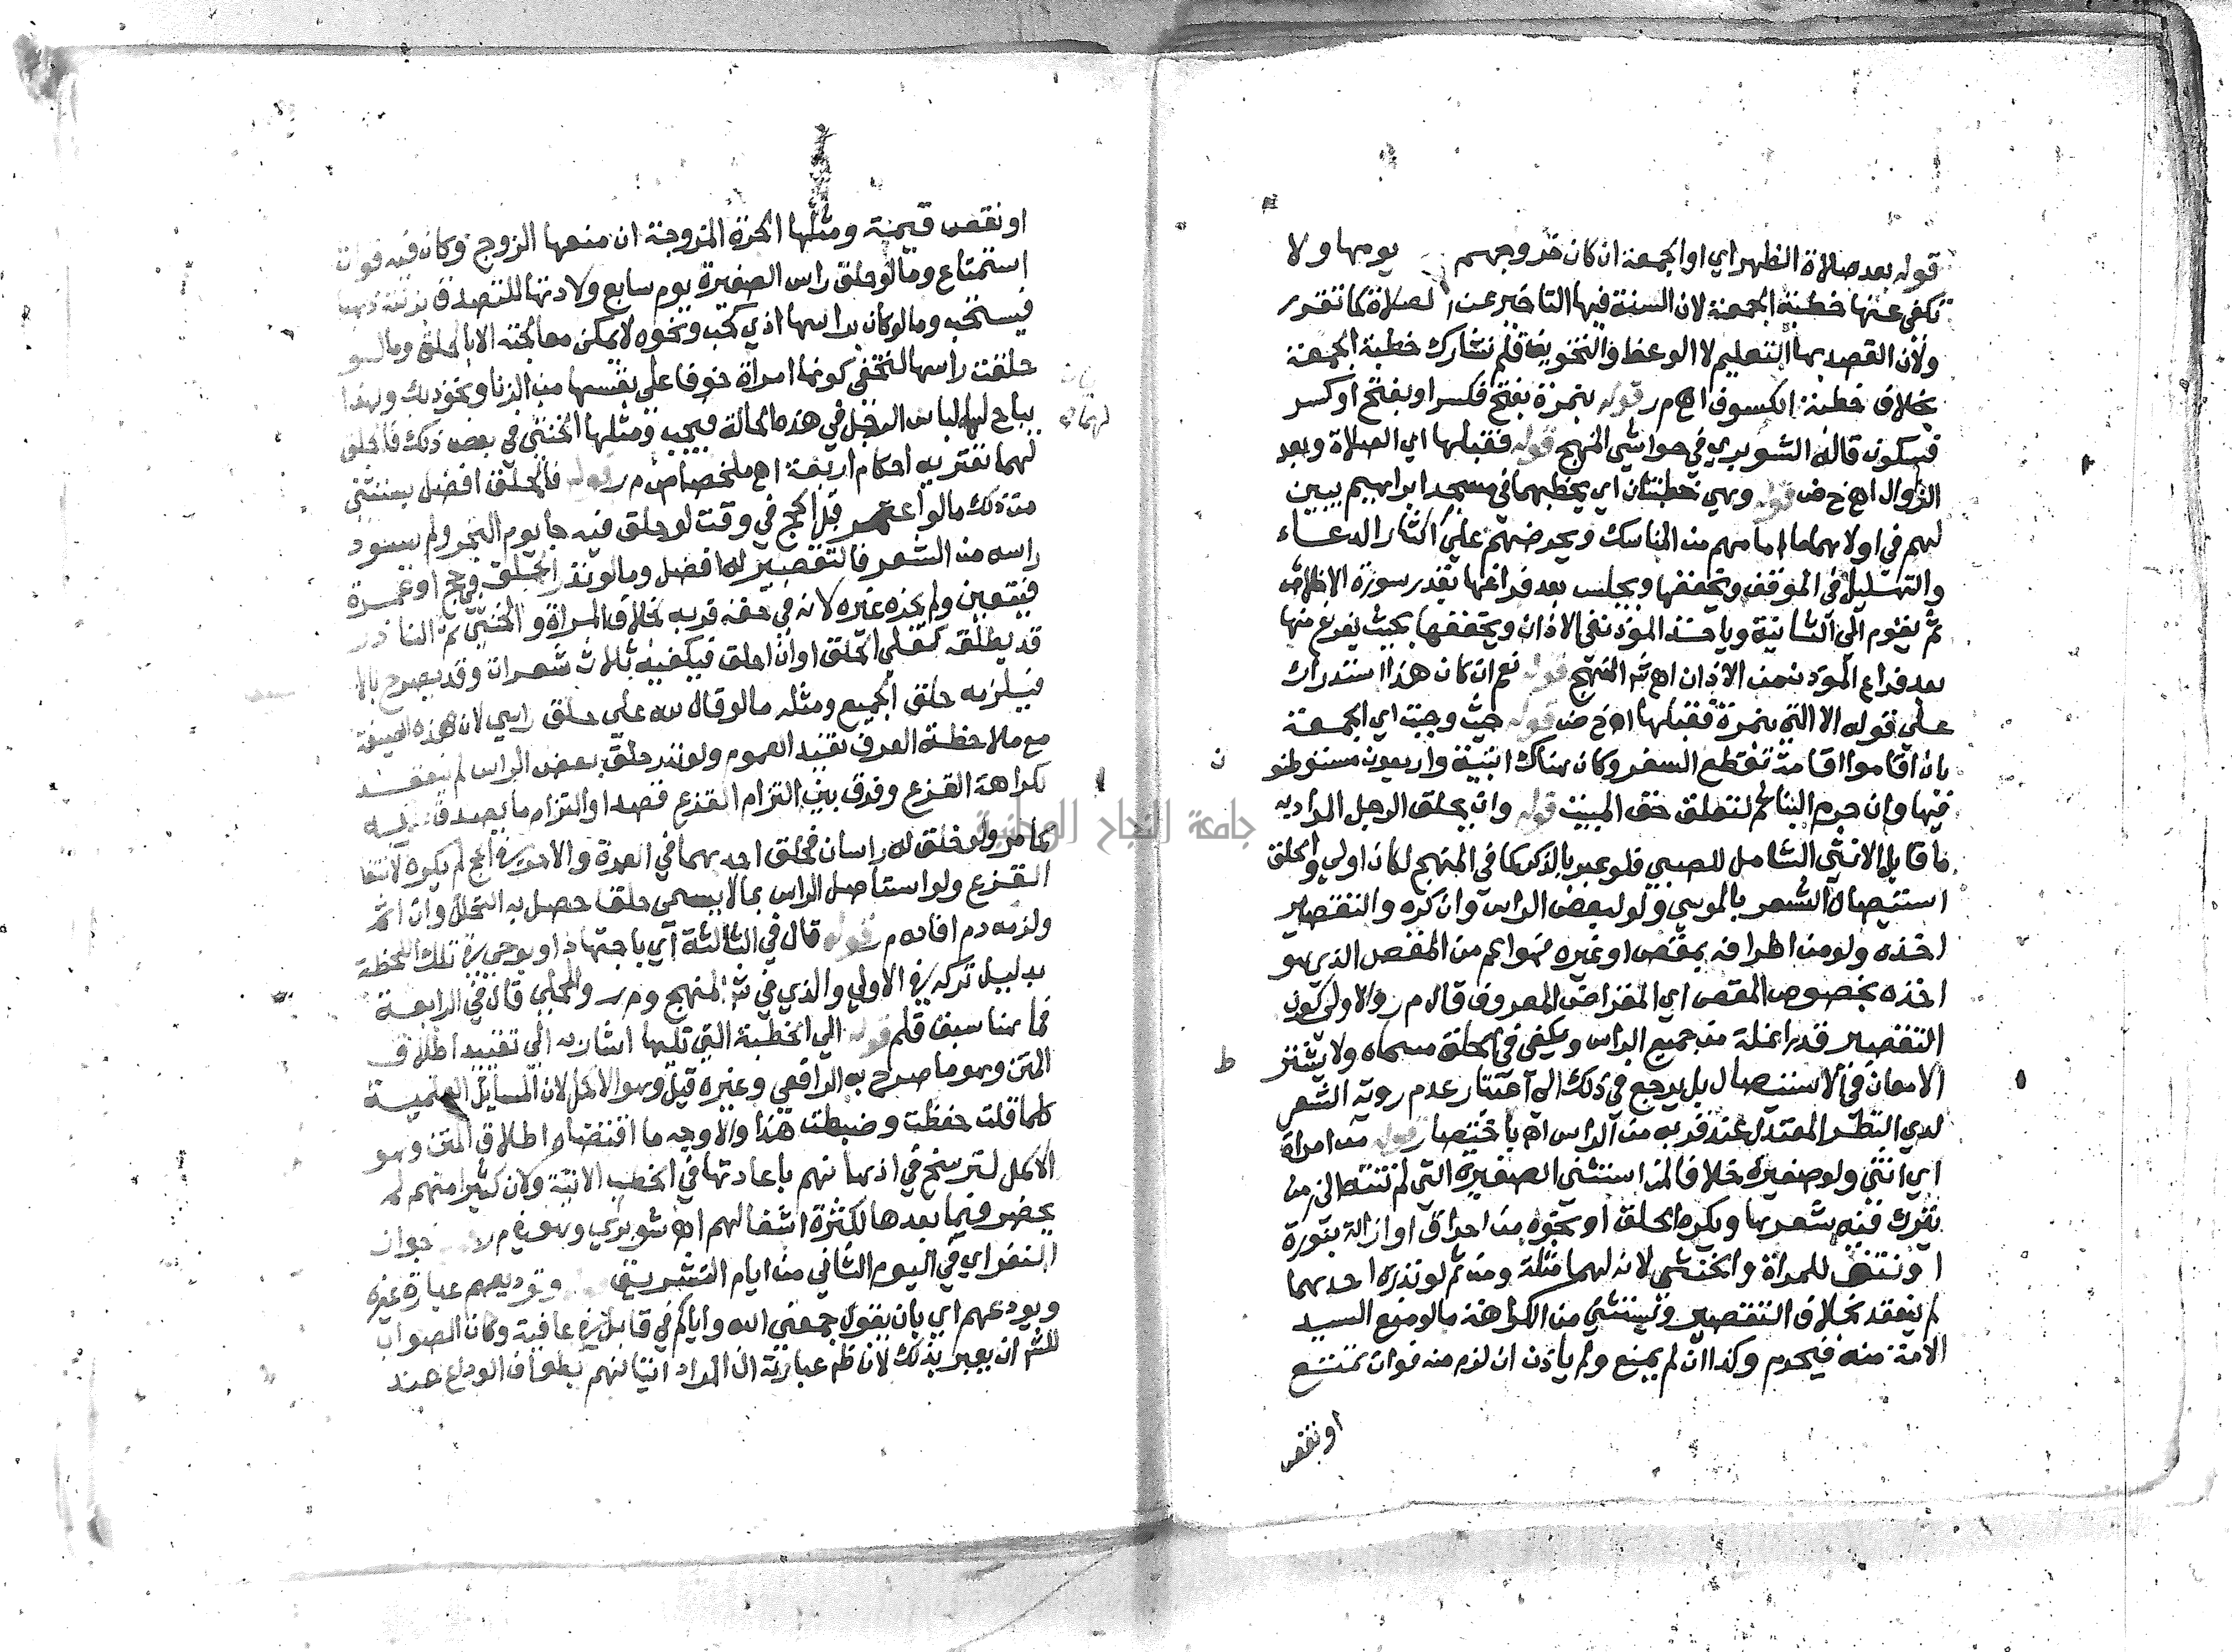 قوله بعد صلاة الظهر اي او الجمعة ان كان خروجهم يومها ولا
تكفي عنها خطبة الجمعة لان السنة فيها التاخير عن الصلاة كما تقرر
ولان القصد بها التعليم لا الوعظ والتخويف فلم تشارك خطبة الجمعة
بخلاف خطبة الكسوف اهـ م ر قوله بنمرة بفتح فكسر او بفتح او كسر
فسكون قاله الشوبري في حواشي المنهج قوله فقبلها اي الصلاة وبعد
الزوال اهـ خ ض قوله وهي خطبتان اي يخطبهما في مسجد ابراهيم يبين
لهم في اولاهما ما امامهم من المناسك ويحرضهم علي اكثار الدعاء
والتهليل في الموقف ويخففها ويجلس بعد فراغها بقدر سورة الاخلاص
ثم يقوم الي الثانية وياخذ الموذن في الاذان ويخففها بحيث يفرغ منها
بعد فراغ الموذن من الاذان اهـ شر المنهج قوله نعم ان كان هذا استدراك
علي قوله الا التي بنمرة فقبلها اهـ خ ض قوله حيث وجبت اي الجمعة
بان اقاموا اقامة تقطع السفر وكان هناك ابنية واربعون مستوطنو
فيها وان حرم البنا ثم لتعلق حق المبيت قوله وان يحلق الرجل المراد به
ما قابل الانثي الشامل للصبي فلو عبر بالذكر كما في المنهج لكان اولي والحلق
استئصال الشعر بالموسي ولو لبعض الراس وان كره والتقصير
اخذه ولو من اطرافه بمقص او غيره فهو اعم من المقص الذي هو
اخذه بخصوص المقص اي المقراض المعروف قال م ر والاولي كون
التقصير قدر انملة من جميع الراس ويكفي في الحلق مسماه ولا يشتر
الامعان في الاستئصال بل يرجع في ذلك الي اعتبار عدم روية الشعر
لدي النظر المعتدل عند قربه من الراس اهـ باختصار قوله من امراة
اي انثي ولو صغيرة خلافا لمن استثني الصغيرة التي لم تنته الي زمن
يترك فيه شعرها ويكره الحلق او نحوه من احراق او ازالة بنورة
او نتف للمراة والخنثي لانه لهما مثلة ومن ثم لو نذره احدهما
لم ينعقد بخلاف التقصير ويستثني من الكراهة ما لو منع السيد
الامة منه فيحرم وكذا ان لم يمنع ولم ياذن ان لزم منه فوات تمتع
او نقص
او نقص قيمة ومثلها الحرة المزوجة ان منعها الزوج وكان فيه فوات
استمتاع وما لو حلق راس الصغيرة يوم سابع ولادتها للتصدق بزنته
فيستحب وما لو كان براسها اذي كحب ونحوه لا يمكن معالجته الا بالحلق وما لو
حلقت راسها لتخفي كونها امراة خوفا علي نفسها من الزنا ونحو ذلك ولهذا
يباح لها لباس الرجل في هذه الحالة فيجب ومثلها الخنثي في بعض ذلك فالحلق
لهما تعتريه احكام اربعة اهـ ملخصا من م ر قوله فالحلق افضل يستثني
من ذلك ما لو اعتمر قبل الحج في وقت لو حلق فيه جا يوم النحر ولم يسود
راسه من الشعر فالتقصير له افضل وما لو نذر الحلق في حج او عمرة
فيتعين ولم يجزه غيره لانه في حقه قربه بخلاف المراة والخنثي ثم الناذر
قد يطلقه كعلي الحلق او ان احلق فيكفيه ثلاث شعرات وقد يصرح بالا
فيلزمه حلق الجميع ومثله ما لو قال لله علي حلق راسي لان هذه الصيغة
مع ملاحظة العرف تفيد العموم ولو نذر حلق بعض الراس لم ينعقد
لكراهة القزع وفرق بين التزام القزع قصدا والتزام ما يصدق به
كما مر ولو خلق له راسان فحلق احدهما في العمرة والاخر في الحج لم يكره لانتفا
القزع ولو استاصل الراس بما لا يسمي حلقا حصل به التحلل وان اثم
ولزمه دم افاده م ر قوله قال في الثالثة اي باجتهاد او بوحي في تلك اللحظة
بدليل تركه في الاولي والذي في شر المنهج وم ر والمحلي قال في الرابعة
فما هنا سبق قلم قوله الي الخطبة التي تليها اشار به الي تقييد اطلاق
المتن وهو ما صرح به الرافعي وغيره قيل وهو الاكمل لان المسايل العلمية
كلما قلت حفظت وضبطت هذا والاوجه ما اقتضاه اطلاق المتن وهو
الاكمل لترسخ في اذهانهم باعادتها في الخطب الاتية ولان كثيرا منهم لم
يحضر فيما بعدها لكثرة اشغالهم اهـ شوبري وهو في م ر جواز
النفر اي في اليوم الثاني من ايام التشريق وتوديعهم عبارة غيره
ويودعهم اي بان يقول جمعني الله واياكم في قابل في عافية وكان الصواب
للشر ان يعبر بذلك لان ظر عبارته ان المراد اتيانهم بطواف الوداع عند